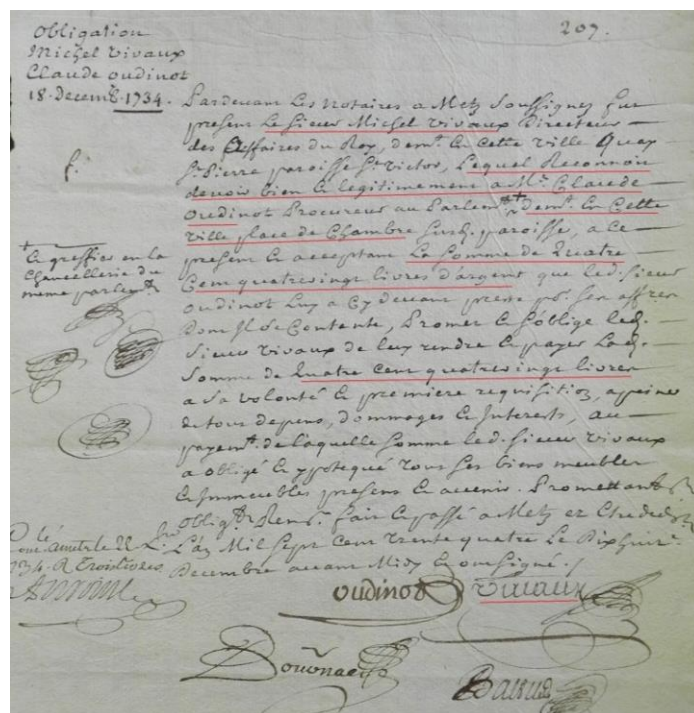 207.
Obligation
Michel Vivaux
Claude Oudinot
18. Decemb. 1734.
Pardevant Les Notaires a Metz Soussignez fut
present Le Sieur Michel Vivaux Directeur
des Affaires du Roy, demt. en Cette Ville Quay
St. Pierre paroisse St. Victor, Lequel Reconnoit
devoir bien et legitimement a Me. Claude
Oudinot Procureur au Parlemt. demt. en Cette
Ville place de Chambre paroisse, a ce
present et acceptant La Somme de Quatre
Cent quatrevingt livres d'argent que led. Sieur
Oudinot Luy a Cy devant preté pr. Ses affres
Dont Il se Contente, Promet et S'oblige led.
Sieur Vivaux de luy rendre et payer Lad.
Somme de Quatre Cent quatrevingt livres
a Sa Volonté et premiere requisition, a peine
de tous depens, dommages et Interests, au
payemt. de laquelle Somme led. Sieur Vivaux
a obligé et ypotequé tous Ses biens meubles
et Immeubles presens et avenir. Promettant
Obligt. Rent. fait et passé a Metz
L'an Mil Sept Cent Trente quatre Le Dix huit
Decembre avant Midy et ont signé.
+
et greffier en la
Chancellerie du
meme parlemt.
Oudinot Vivaux